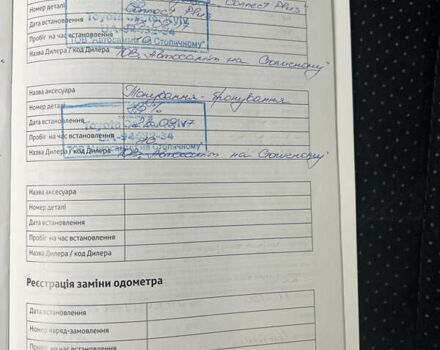 Connect Plus"
Номер деталі Connect Plus
Дата встановлення
Пробіг на час встановлення
Назва Дилера / код Дилера ТОВ „Автосаміт на Столичному"
Назва аксесуара Тонування - бронування
Номер деталі 35%
Дата встановлення
Пробіг на час встановлення
Назва Дилера / код Дилера ТОВ „Автосаміт на Столичному"
ТОВ "Автосаміт на Столичному"
Назва аксесуара
Номер деталі
Дата встановлення
Пробіг на час встановлення
Назва Дилера / код Дилера
Реєстрація заміни одометра
Дата встановлення
Номер наряд-замовлення
Пробіг на час встановлення